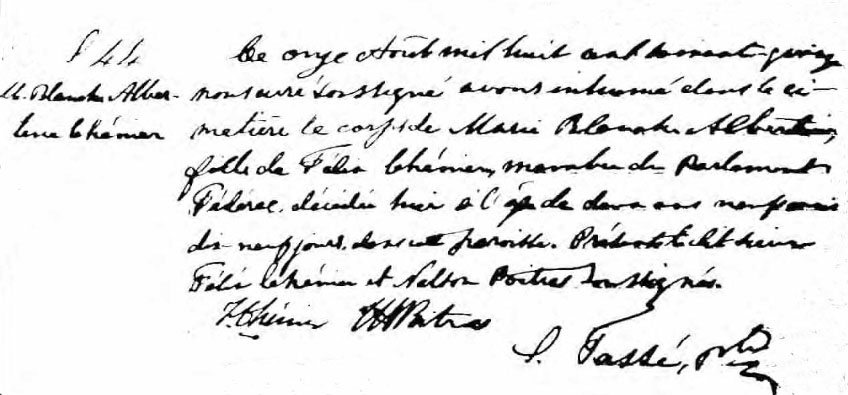 S 44
M. Blanche Alber-
tine Chénier
Le onze Août mil huit cent soixante-quinze
nous curé soussigné avons inhumé dans le ci-
metière le corps de Marie Blanche Albertine,
fille de Félix Chénier, membre du Parlement
Fédéral, décédée hier à l'âge de deux ans neuf mois
dix-neuf jours, dans cette paroisse. Présents le dit sieur
Félix Chénier et Nelson Poitras soussignés.
F. Chénier Poitras
S. Tassé, ptre